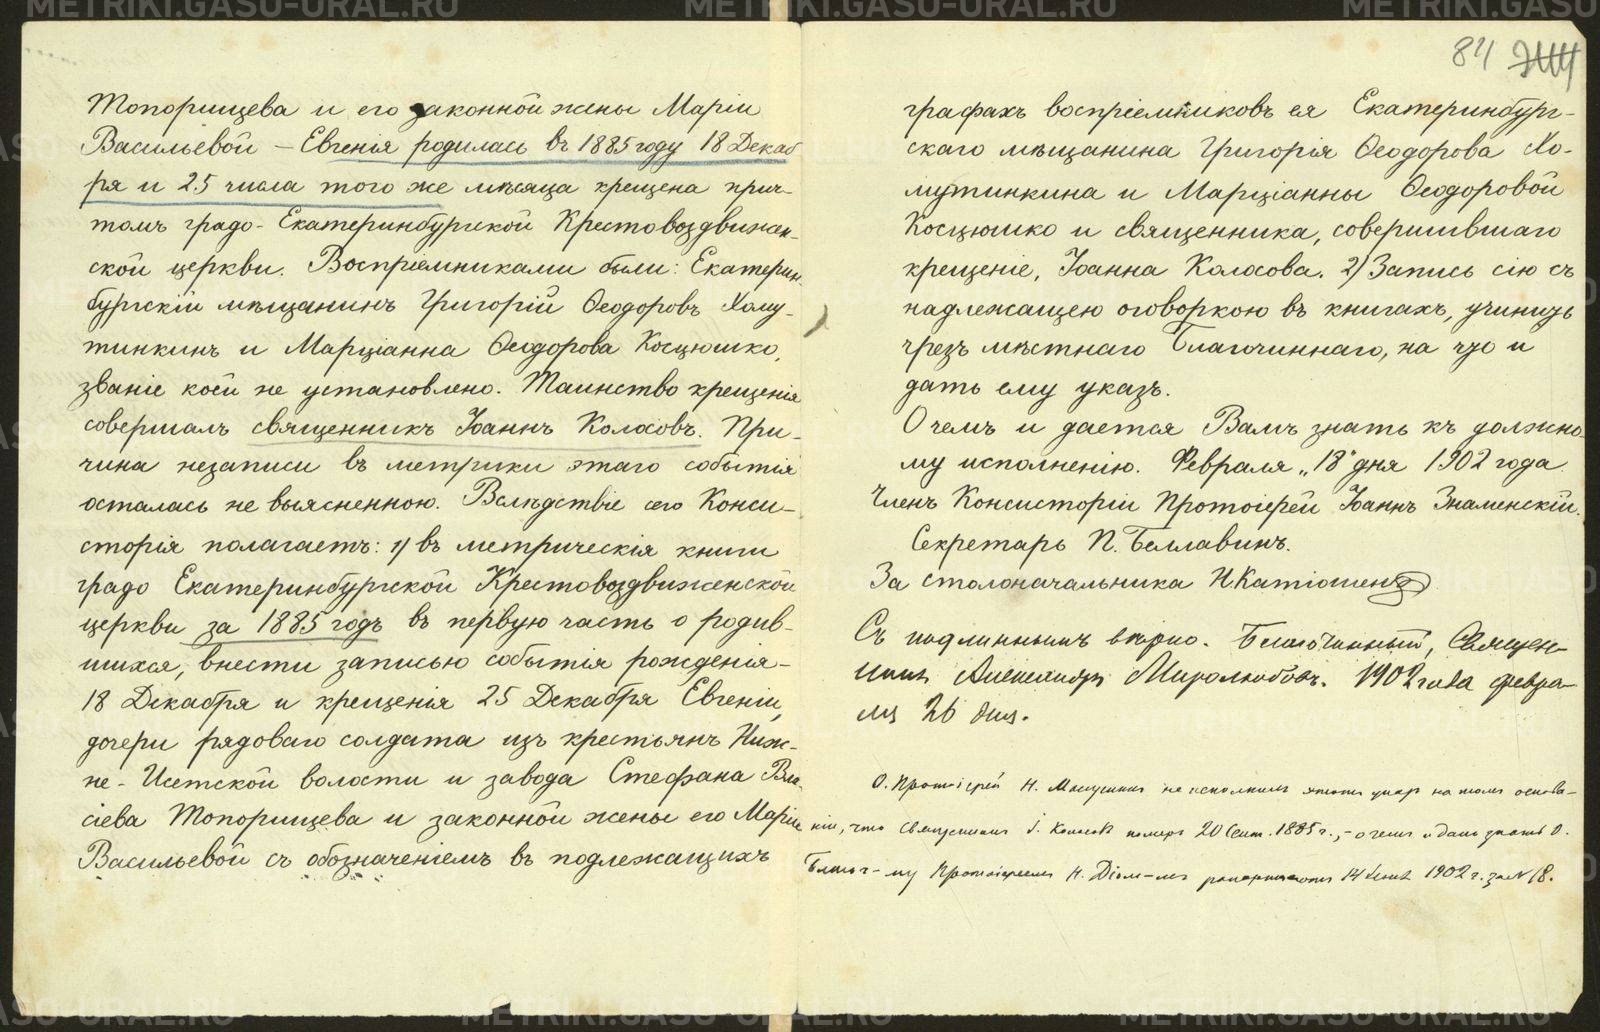 METRIKI.GASO-URAL.RU
84
Топорищева и его законной жены Маріи
Васильевой – Евгенія родилась въ 1885 году 18 Декаб
ря и 25 числа того же мѣсяца крещена прич-
томъ градо-Екатеринбургской Крестовоздвижен-
ской церкви. Воспріемниками были: Екатерин-
бургскій мѣщанинъ Григорій Ѳеодоровъ Хому-
тинкинъ и Марціанна Ѳеодорова Косцюшко,
званіе коей не установлено. Таинство крещенія
совершалъ священникъ Іоаннъ Колосовъ. При-
чина незаписи въ метрики этаго событія
осталась не выясненною. Вслѣдствіе сего Конси-
сторія полагаетъ: 1) въ метрическія книги
градо Екатеринбургской Крестовоздвиженской
церкви за 1885 годъ въ первую часть о родив-
шихся, внести записью событія рожденія-
18 Декабря и крещенія 25 Декабря Евгеніи,
дочери рядоваго солдата изъ крестьянъ Ниж-
не-Исетской волости и завода Стефана Вла-
сіева Топорищева и законной жены его Маріи
Васильевой съ обозначеніемъ въ подлежащихъ
графахъ воспріемниковъ ея Екатеринбург-
скаго мѣщанина Григорія Ѳеодорова Хо-
мутинкина и Марціанны Ѳеодоровой
Косцюшко и священника, совершившаго
крещеніе, Іоанна Колосова. 2) Запись сію съ
надлежащею оговоркою въ книгахъ, учинить
чрезъ мѣстнаго Благочиннаго, на что и
дать ему указъ.
О чемъ и дается Вамъ знать къ должно-
му исполненію. Февраля „18" дня 1902 года.
Членъ Консисторіи Протоіерей Іоаннъ Знаменскій.
Секретарь П. Беллавинъ.
За столоначальника
Съ подлиннымъ вѣрно. Благочинный, Священ-
никъ Александръ Миролюбовъ. 1902 года февра-
ля 26 дня.
О. Протоіерей Н. не исполнилъ этотъ указ на томъ основа-
ніи, что Священникъ І. Колосовъ померъ 20 Сент. 1885 г., – о чемъ и далъ знать О.
Благоч-му Протоіерею Н. рапортомъ 14 1902 г. за № 18.